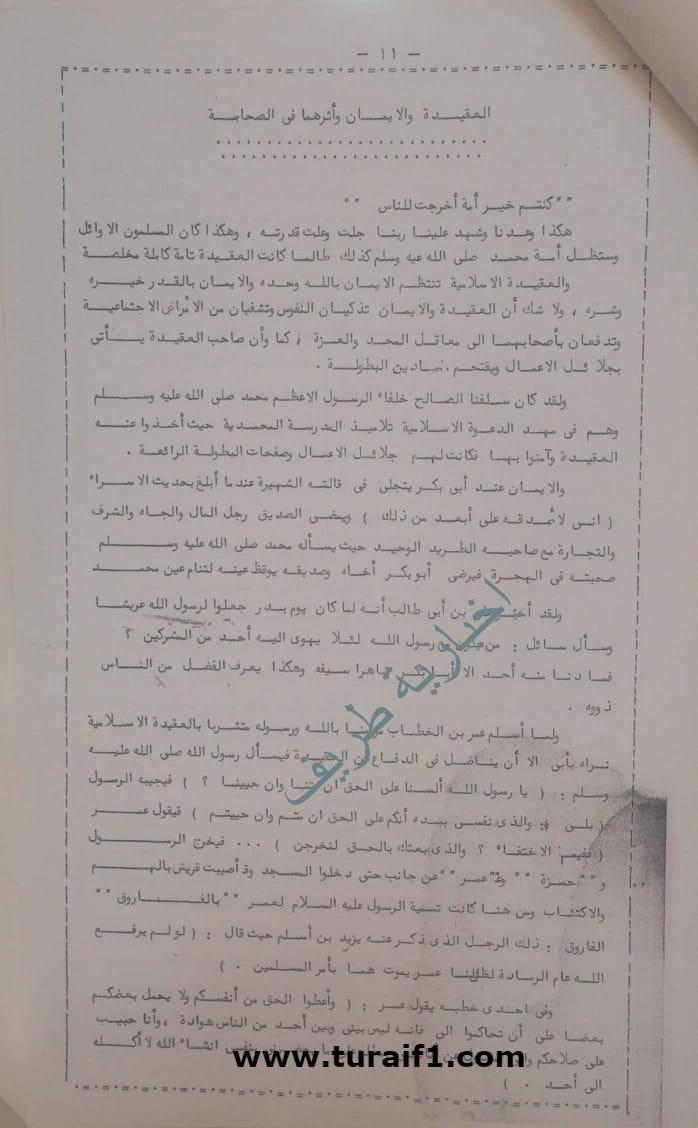 - ١١ -
العقيدة والايمان وأثرهما فى الصحابة
" كنتم خير أمة أخرجت للناس "
هكذا وعدنا وشهد علينا ربنا جلت وعلت قدرته ، وهكذا كان المسلمون الاوائل
وستظل أمة محمد صلى الله عيه وسلم كذلك طالما كانت العقيدة تامة كاملة مخلصة
والعقيدة الاسلامية تنتظم الايمان بالله وحده والايمان بالقدر خيره
وشره ، ولا شك أن العقيدة والايمان تذكيان النفوس وتشفيان من الأمراض الاجتماعية
وتدفعان بأصحابهما الى معاقل المجد والعزة ، كما وأن صاحب العقيدة يأتى
بجلائل الاعمال ويقتحم ميادين البطولة .
ولقد كان سلفنا الصالح خلفاء الرسول الاعظم محمد صلى الله عليه وسلم
وهم فى مهد الدعوة الاسلامية تلاميذ المدرسة المحمدية حيث أخذوا عنه
العقيدة وآمنوا بها فكانت لهم جلائل الاعمال وصفحات البطولة الرائعة .
والايمان عند أبى بكر يتجلى فى قالته الشهيرة عندما أبلغ بحديث الاسراء
( انى لأصدقه على أبعد من ذلك ) ويمضى الصديق رجل المال والجاه والشرف
والتجارة مع صاحبه الطريد الوحيد حيث يسأله محمد صلى الله عليه وسلم
صحبته فى الهجرة فيرضى أبو بكر أخاه وصديقه يوقظ عينه لتنام عين محمد
ولقد بن أبى طالب أنه لما كان يوم بدر جعلوا لرسول الله عريشا
وسأل سائل : من يكون مع رسول الله لئلا يهوى اليه أحد من المشركين ؟
فما دنا منه أحد الا أبو بكر شاهرا سيفه وهكذا يعرف الفضل من الناس
ذووه .
ولما أسلم عمر بن الخطاب مؤمنا بالله ورسوله متشربا بالعقيدة الاسلامية
نراه يأبى الا أن يناضل فى الدفاع عن العقيدة فيسأل رسول الله صلى الله عليه
وسلم : ( يا رسول الله ألسنا على الحق ان متنا وان حيينا ؟ ) فيجيبه الرسول
( بلى : والذى نفسى بيده أنكم على الحق ان متم وان حييتم ) فيقول عمر
( ففيم الاختفاء ؟ والذى بعثك بالحق لنخرجن ) ... فيخرج الرسول
و " حمزة " و " عمر " عن جانب حتى دخلوا المسجد وقد أصيبت قريش بالهم
والاكتئاب ومن هنا كانت تسمية الرسول عليه السلام لعمر " بالفاروق "
الفاروق : ذلك الرجل الذى ذكر عنه يزيد بن أسلم حيث قال : ( لو لم يرفع
الله عام الرمادة لظننا عمر يموت هما بأمر المسلمين . )
وفى احدى خطبه يقول عمر : ( وأعطوا الحق من أنفسكم ولا يحمل بعضكم
بعضا على أن تحاكموا الى فانه ليس بينى وبين أحد من الناس هوادة ، وأنا حبيب
على صلاحكم بنفسى انشاء الله لا أكله
الى أحد . )
اخبارية طريف
www.turaif1.com